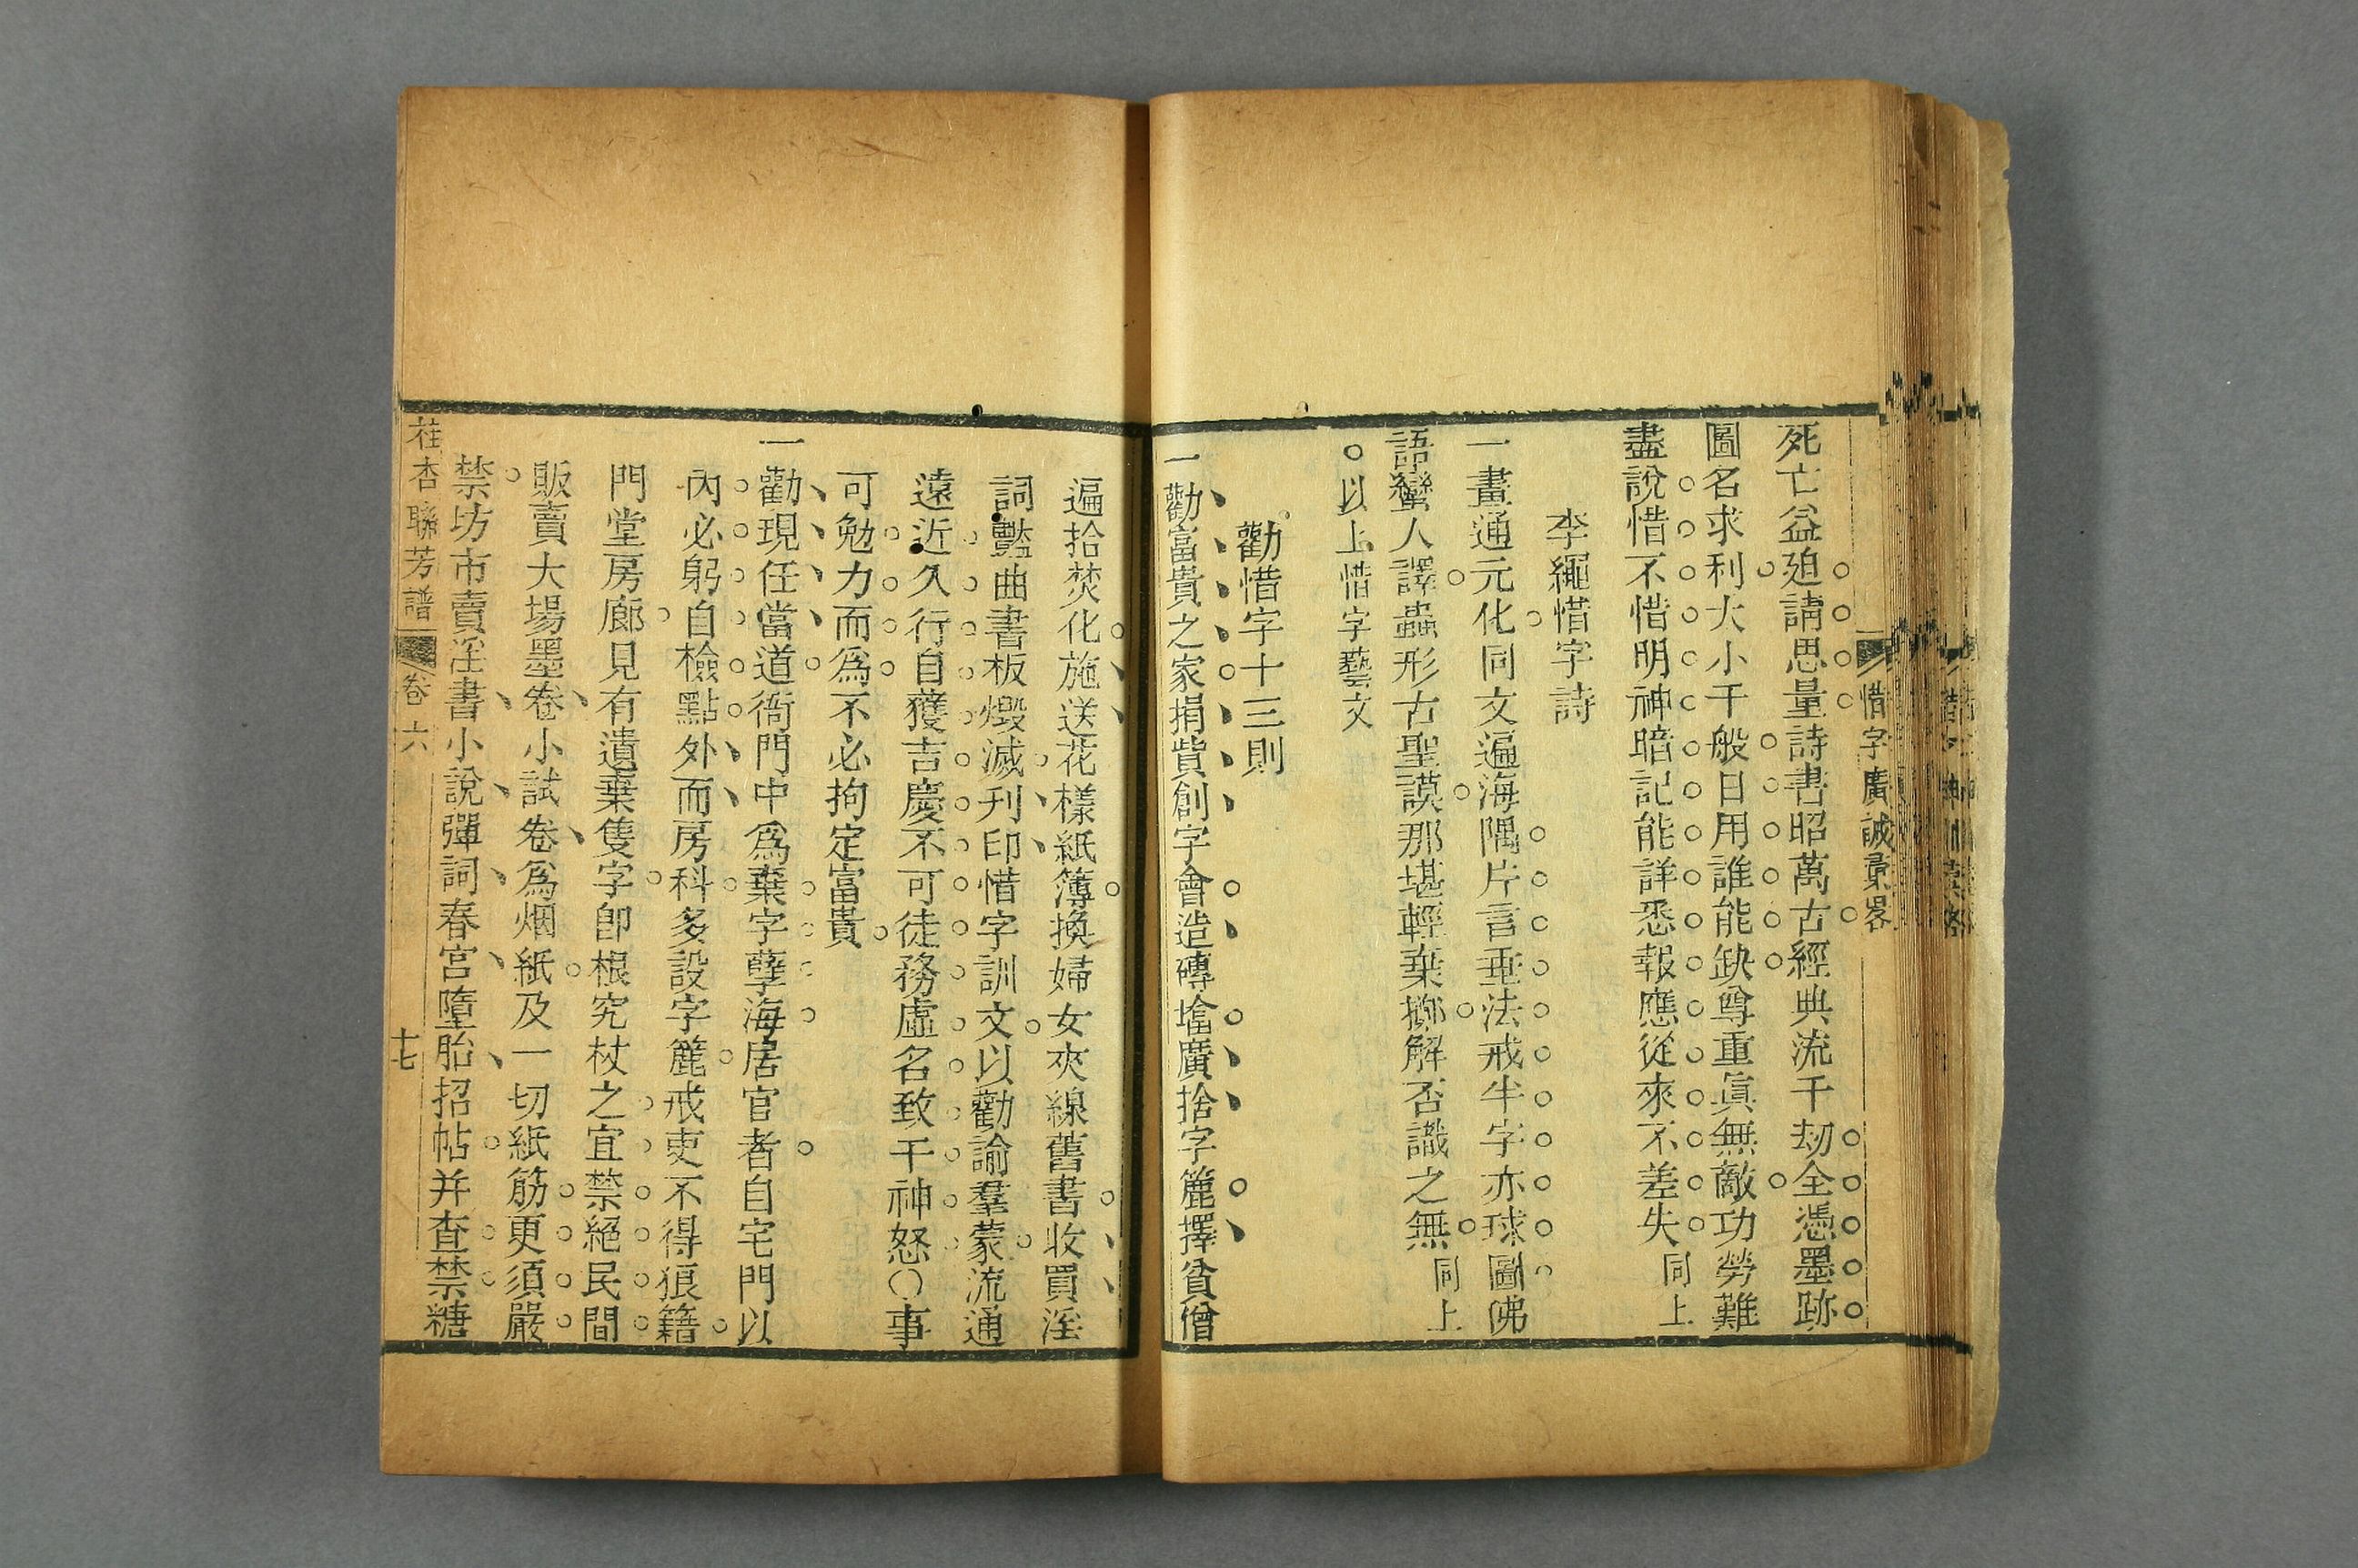 惜字廣誠彔畧
死亡益廹請思量詩書昭萬古經典流千刼全憑墨跡
圖名求利大小千般日用誰能缺尊重眞無敵功勞難
盡說惜不惜明神暗記能詳悉報應從來不差失同上
李繩惜字詩
一畫通元化同文遍海隅片言垂法戒半字亦球圖佛
語蠻人譯蟲形古聖謨那堪輕棄擲解否識之無同上
以上惜字藝文
勸惜字十三則
一勸富貴之家捐貲創字會造磚壋廣捨字簏擇貧僧
遍拾焚化施送花樣紙簿換婦女夾線舊書收買淫
詞豔曲書板燬滅刋印惜字訓文以勸諭羣蒙流通
遠近久行自獲吉慶不可徒務虛名致干神怒〇事
可勉力而爲不必拘定富貴
一勸現任當道衙門中爲棄字孽海居官者自宅門以
內必躬自檢點外而房科多設字簏戒吏不得狼籍
門堂房廊見有遺棄隻字卽根究杖之宜禁絕民間
販賣大場墨卷小試卷爲烟紙及一切紙筋更須嚴
禁坊市賣淫書小說彈詞春宮墮胎招帖并查禁糖
桂杏聯芳譜 卷六 十七